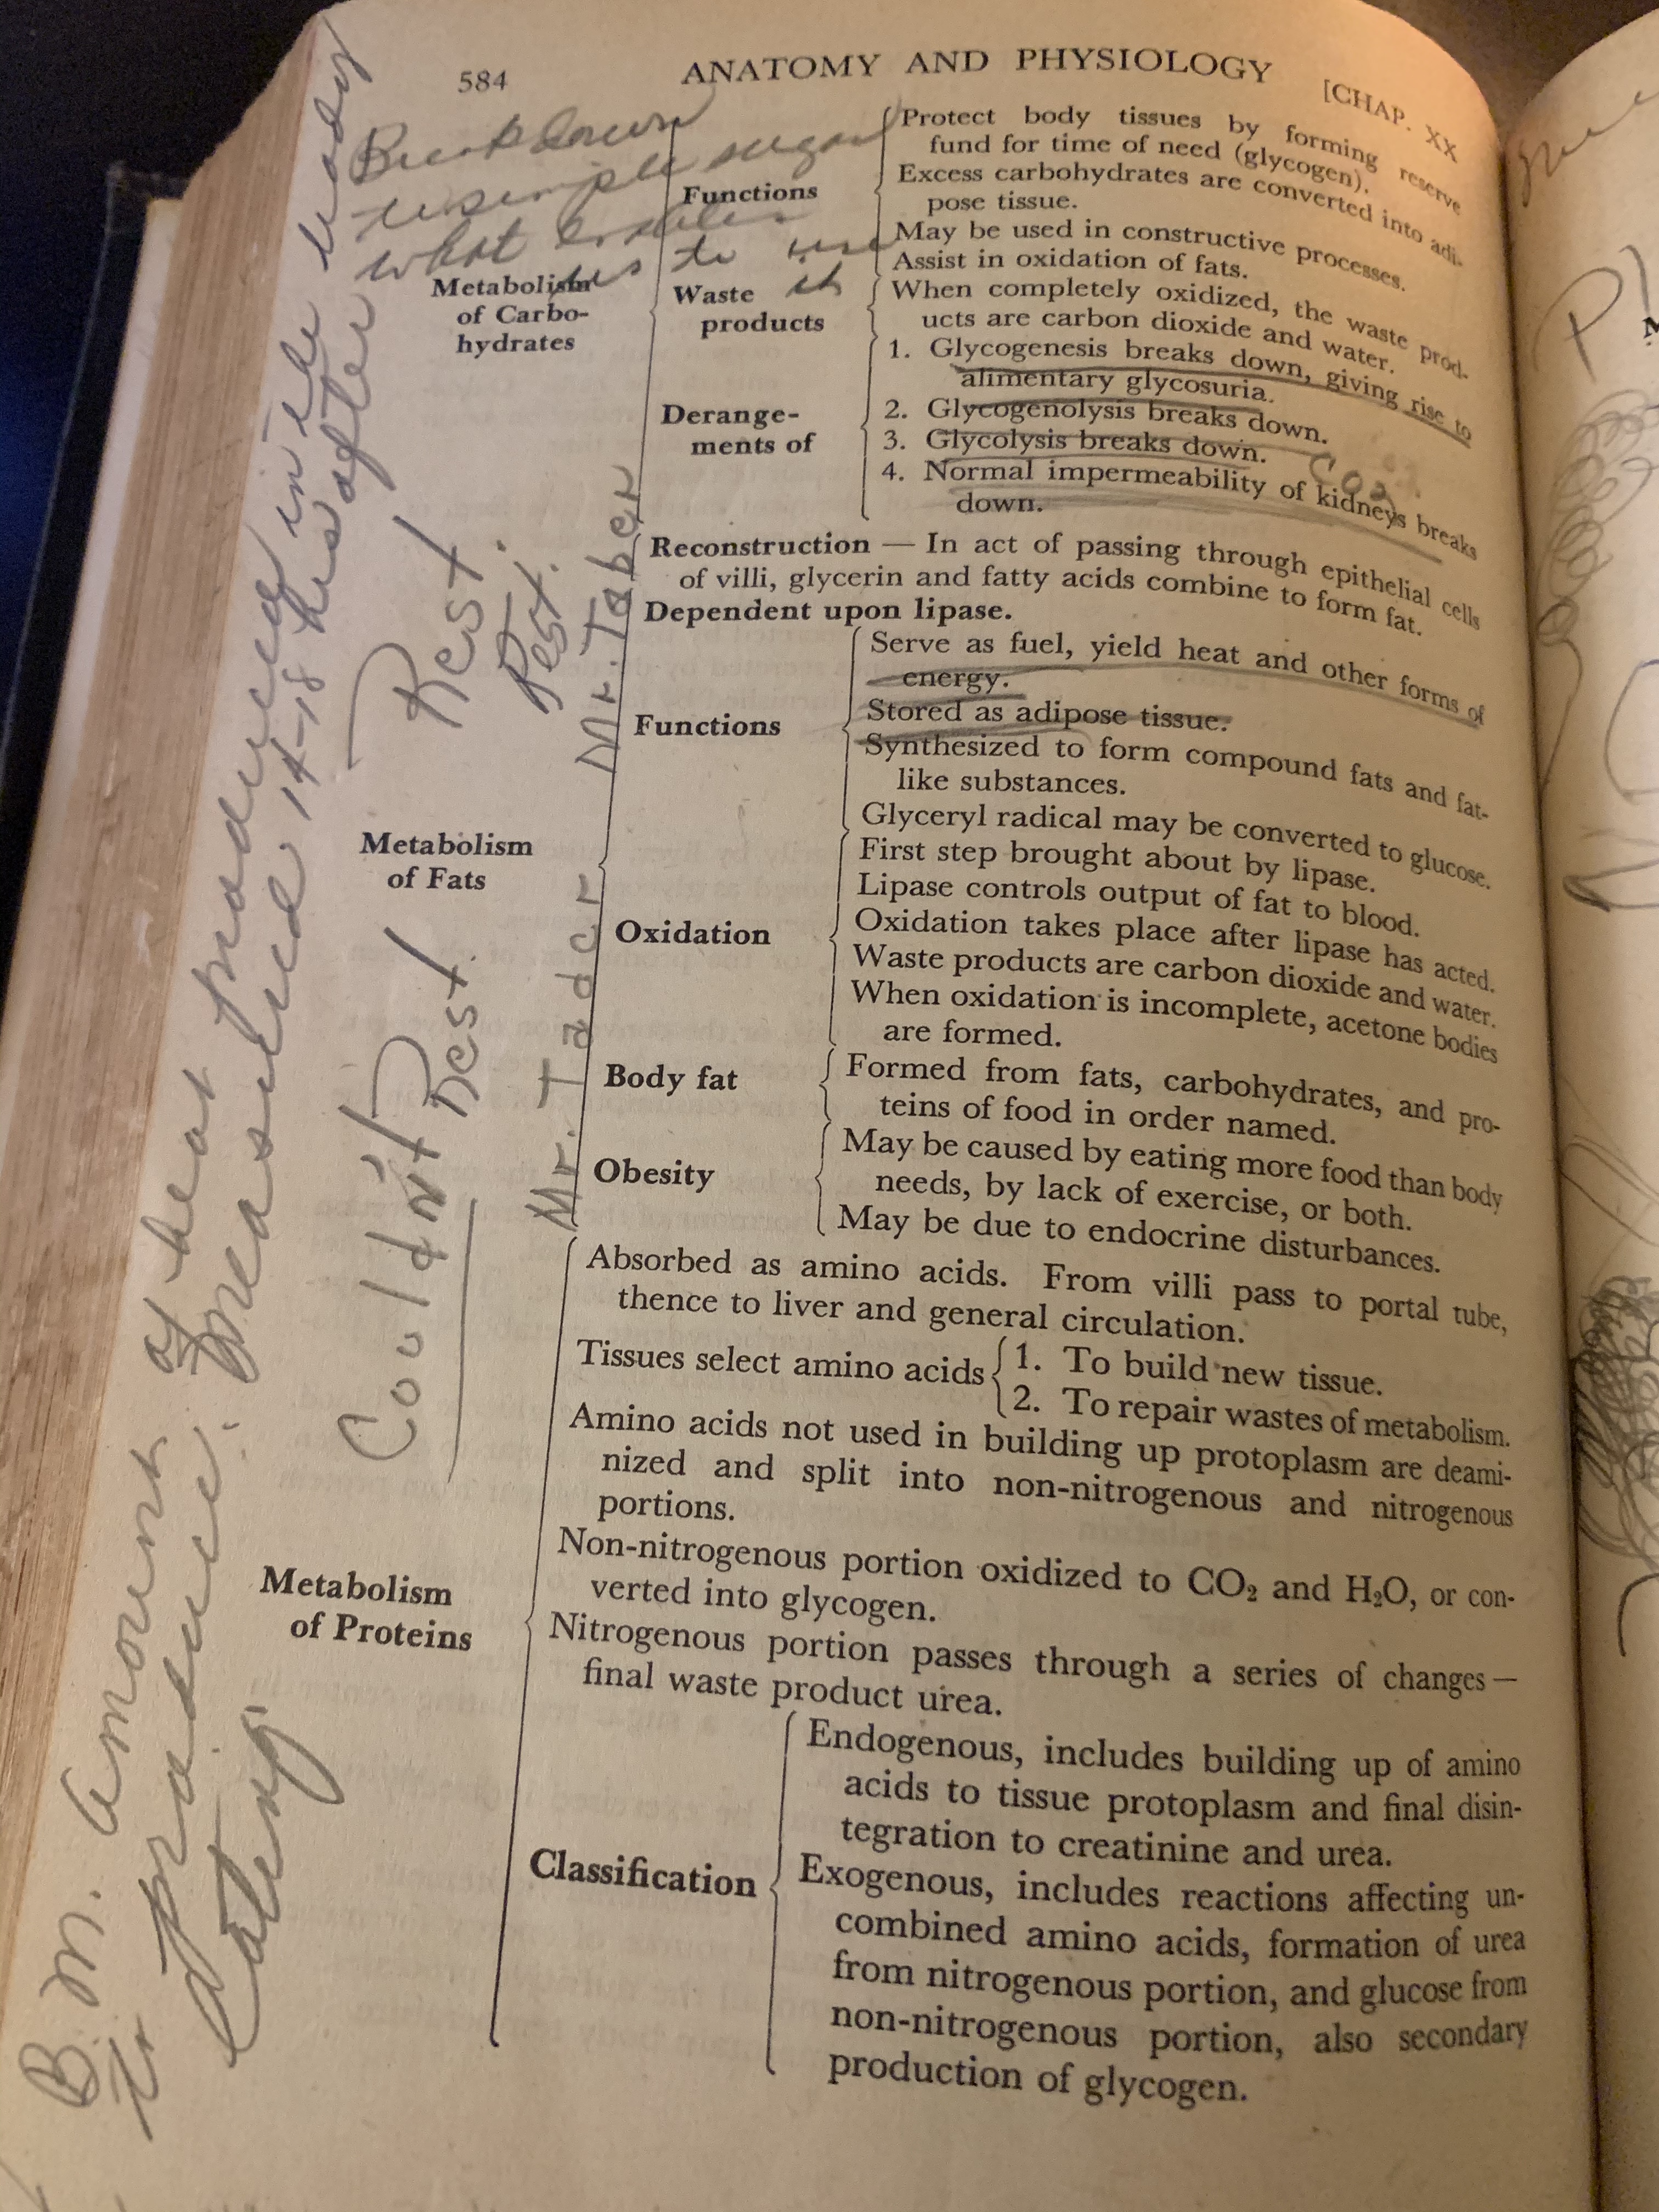 584
ANATOMY AND PHYSIOLOGY
[CHAP. XX
Breakdown
simple sugar
what enables
us to use
it
Metabolism
of Carbo-
hydrates
Functions
Protect body tissues by forming reserve
fund for time of need (glycogen).
Excess carbohydrates are converted into adi-
pose tissue.
May be used in constructive processes.
Assist in oxidation of fats.
Waste
products
When completely oxidized, the waste prod-
ucts are carbon dioxide and water.
Derange-
ments of
1. Glycogenesis breaks down, giving rise to
alimentary glycosuria.
2. Glycogenolysis breaks down.
3. Glycolysis breaks down.
CO2
4. Normal impermeability of kidneys breaks
down.
Metabolism
of Fats
Reconstruction — In act of passing through epithelial cells
of villi, glycerin and fatty acids combine to form fat.
Dependent upon lipase.
Functions
Serve as fuel, yield heat and other forms of
energy.
Stored as adipose tissue.
Synthesized to form compound fats and fat-
like substances.
Glyceryl radical may be converted to glucose.
Oxidation
First step brought about by lipase.
Lipase controls output of fat to blood.
Oxidation takes place after lipase has acted.
Waste products are carbon dioxide and water.
When oxidation is incomplete, acetone bodies
are formed.
Body fat
Formed from fats, carbohydrates, and pro-
teins of food in order named.
Obesity
May be caused by eating more food than body
needs, by lack of exercise, or both.
May be due to endocrine disturbances.
Metabolism
of Proteins
Absorbed as amino acids. From villi pass to portal tube,
thence to liver and general circulation.
Tissues select amino acids
1. To build new tissue.
2. To repair wastes of metabolism.
Amino acids not used in building up protoplasm are deami-
nized and split into non-nitrogenous and nitrogenous
portions.
Non-nitrogenous portion oxidized to CO₂ and H₂O, or con-
verted into glycogen.
Nitrogenous portion passes through a series of changes —
final waste product urea.
Classification
Endogenous, includes building up of amino
acids to tissue protoplasm and final disin-
tegration to creatinine and urea.
Exogenous, includes reactions affecting un-
combined amino acids, formation of urea
from nitrogenous portion, and glucose from
non-nitrogenous portion, also secondary
production of glycogen.
B. M. Amount of heat produced in the body
to produce. Measured 14-18 hrs after
eating
Couldn't Rest Rest
Rest Rest.
Mr. Tader Mr. Taber